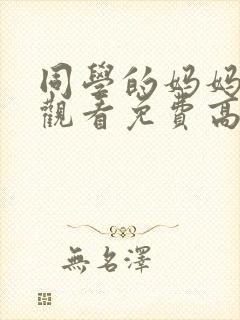 同學的媽媽
觀看免費高
無名澤